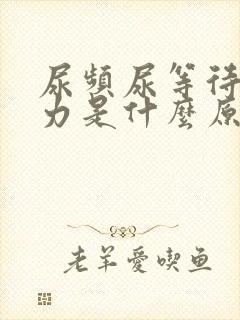 尿頻尿等待
力是什麼原
老羊愛喫鱼